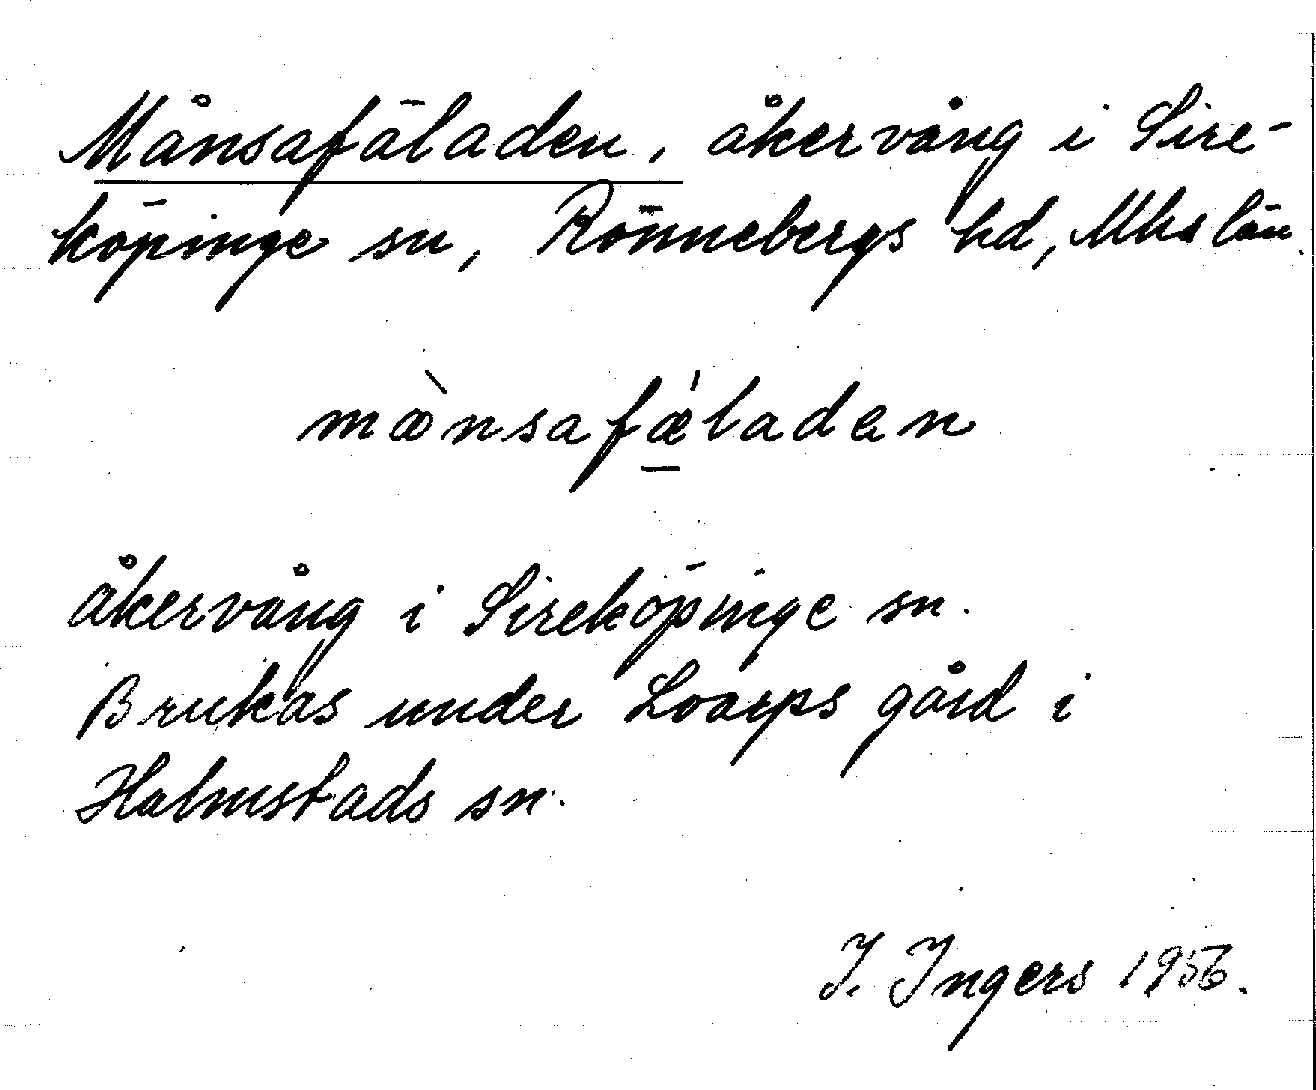 Månsafäladen, åkervång i Sire-
köpinge sn, Rönnebergs hd, Mhs län.
mæ̀nsafǽ̱ladən
åkervång i Sireköpinge sn.
Brukas under Loarps gård i
Halmstads sn.
I. Ingers 1956.